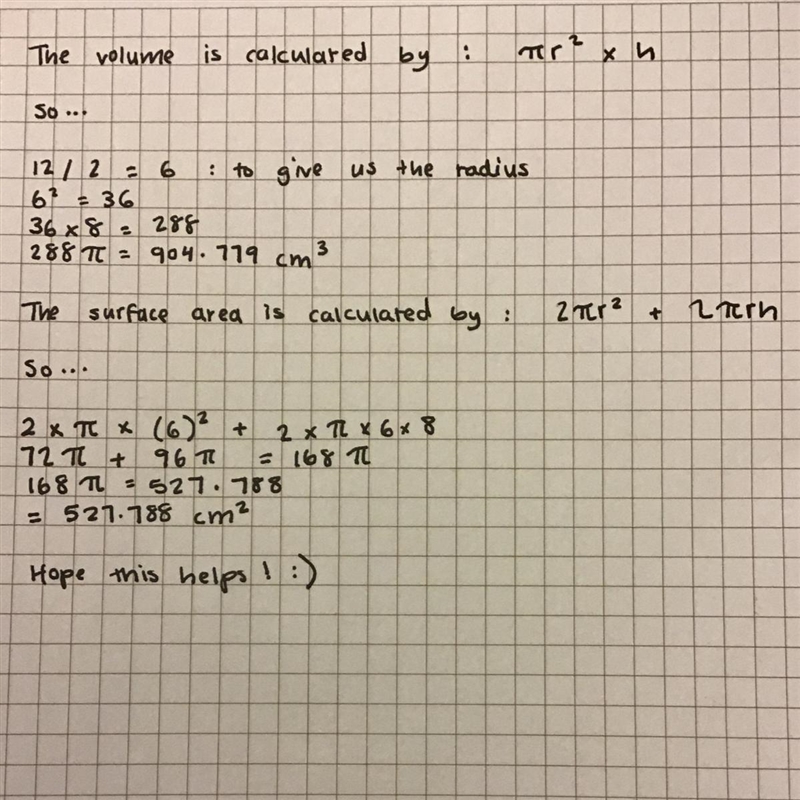 The volume is calculared by : πr² × h
So...
12 / 2 = 6 : to give us the radius
6² = 36
36 × 8 = 288
288 π = 904.779 cm³
The surface area is calculared by : 2πr² + 2πrh
So...
2 × π × (6)² + 2 × π × 6 × 8
72 π + 96 π = 168 π
168 π = 527.788
= 527.788 cm²
Hope this helps ! :)